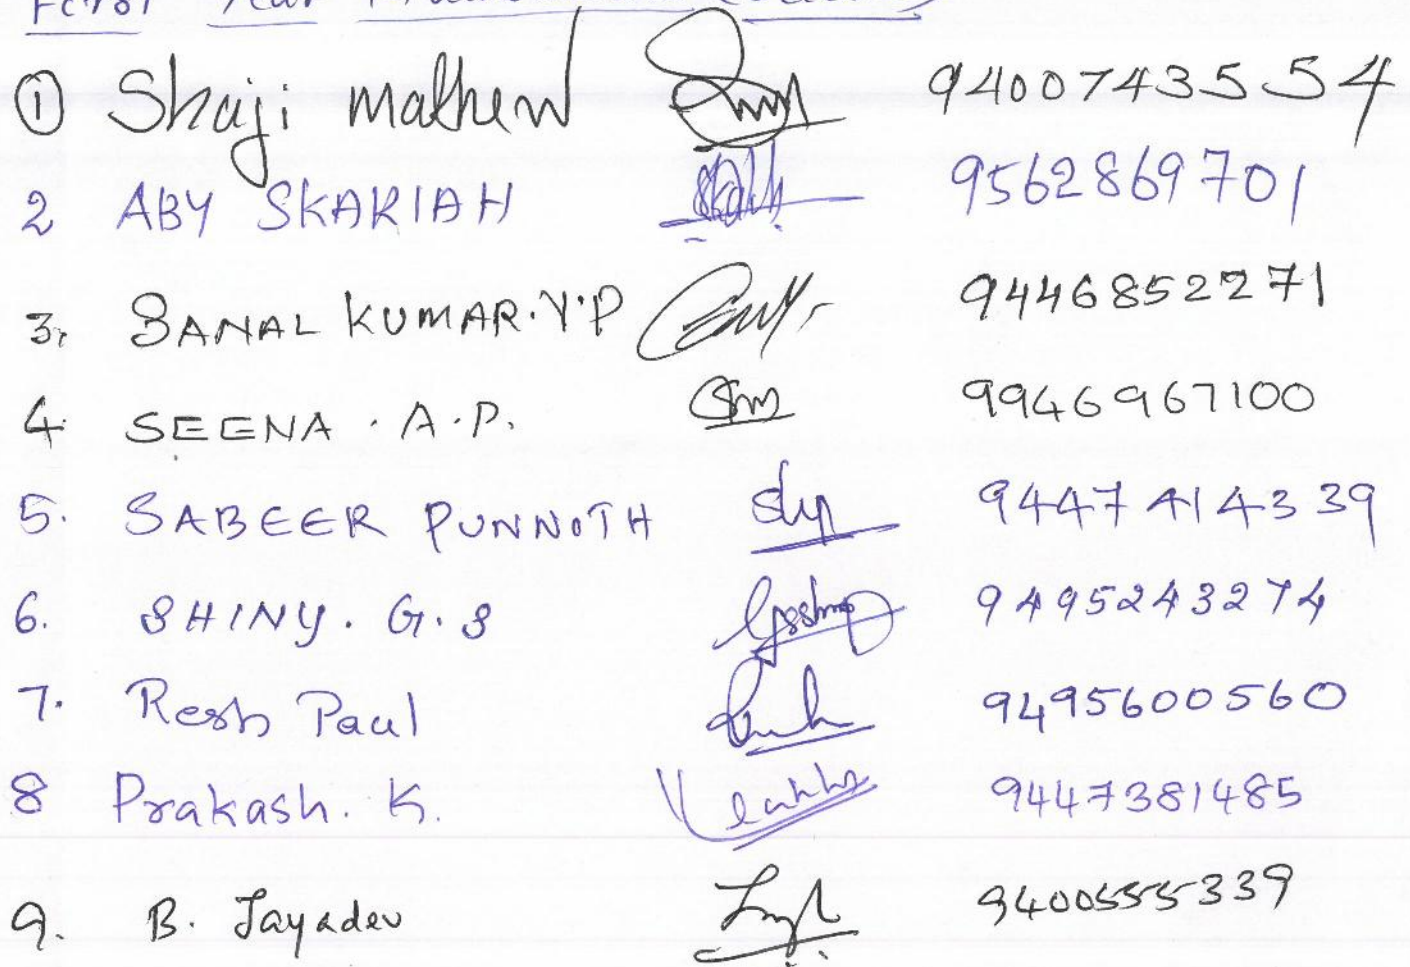 ① Shaji Mathew 9400743554
2 ABY SKARIAH 9562869701
3. SANAL KUMAR.Y.P 9446852271
4. SEENA . A.P. 9946967100
5. SABEER PUNNOTH 9447414339
6. SHINY. G.S 9495243274
7. Paul 9495600560
8 Prakash. K. 9447381485
9. B. Jayadev 9400555339